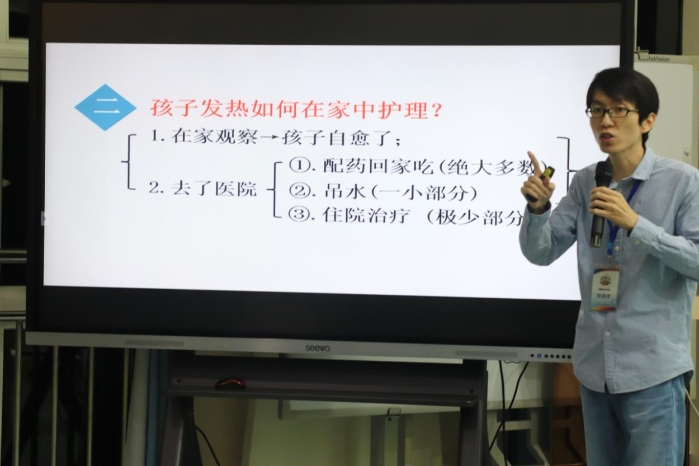 二
孩子发热如何在家中护理？
1.在家观察→孩子自愈了；
2.去了医院
①.配药回家吃(绝大多数
②.吊水(一小部分)
③.住院治疗 (极少部分
seewo